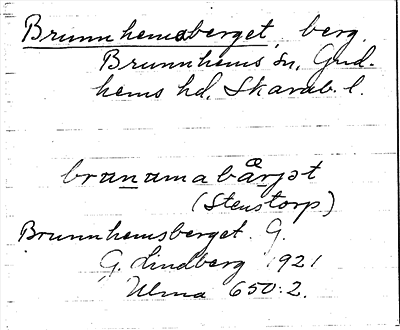 Brunnhemsberget, berg.
Brunnhems sn, Gud-
hems hd, Skarab. l.
branamabärjət
(Stenstorp)
Brunnhemsberget. G.
G. Lindberg 1921
Ulma 650:2.